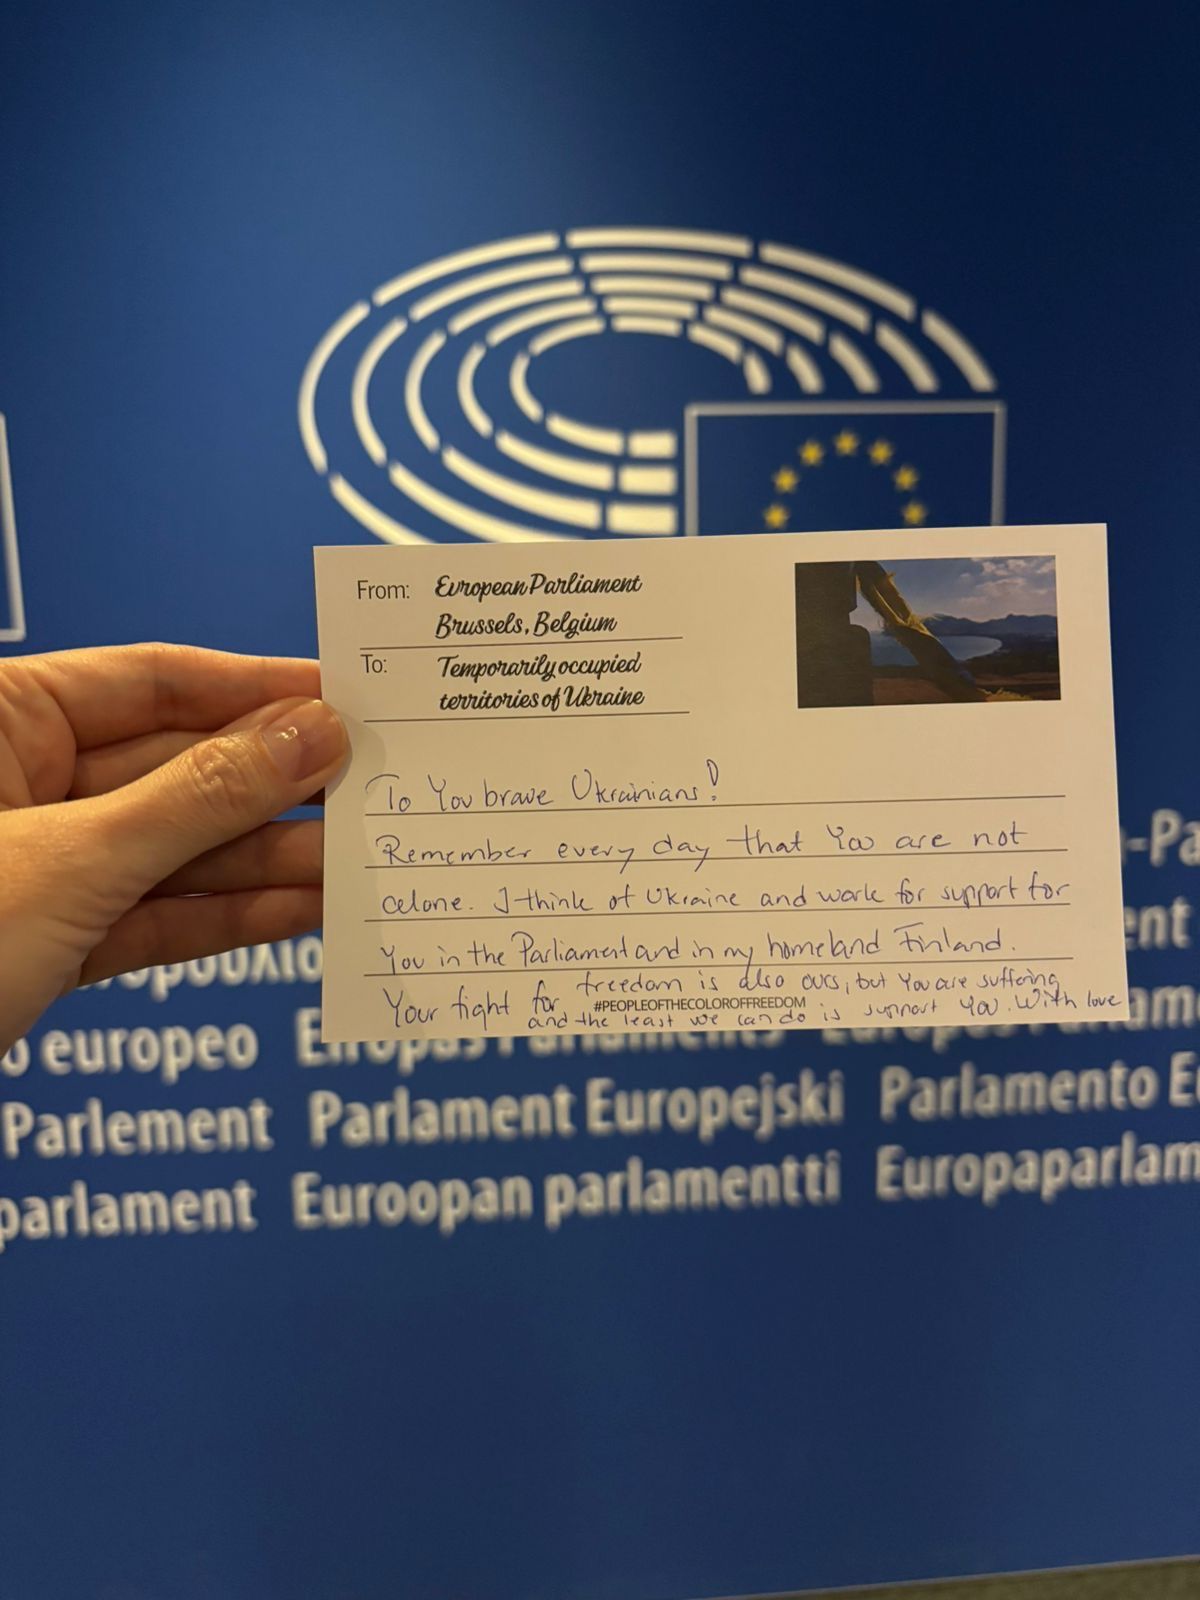 From: European Parliament
Brussels, Belgium
To: Temporarily occupied
territories of Ukraine
To You brave Ukrainians!
Remember every day that You are not
alone. I think of Ukraine and work for support for
You in the Parliament and in my homeland Finland.
Your fight for freedom is also ours, but You are suffering
#PEOPLEOFTHECOLOROFFREEDOM
and the least we can do is support You. With love
o europeo
Parlement Parlament Europejski Parlamento
parlament Euroopan parlamentti Europaparlam